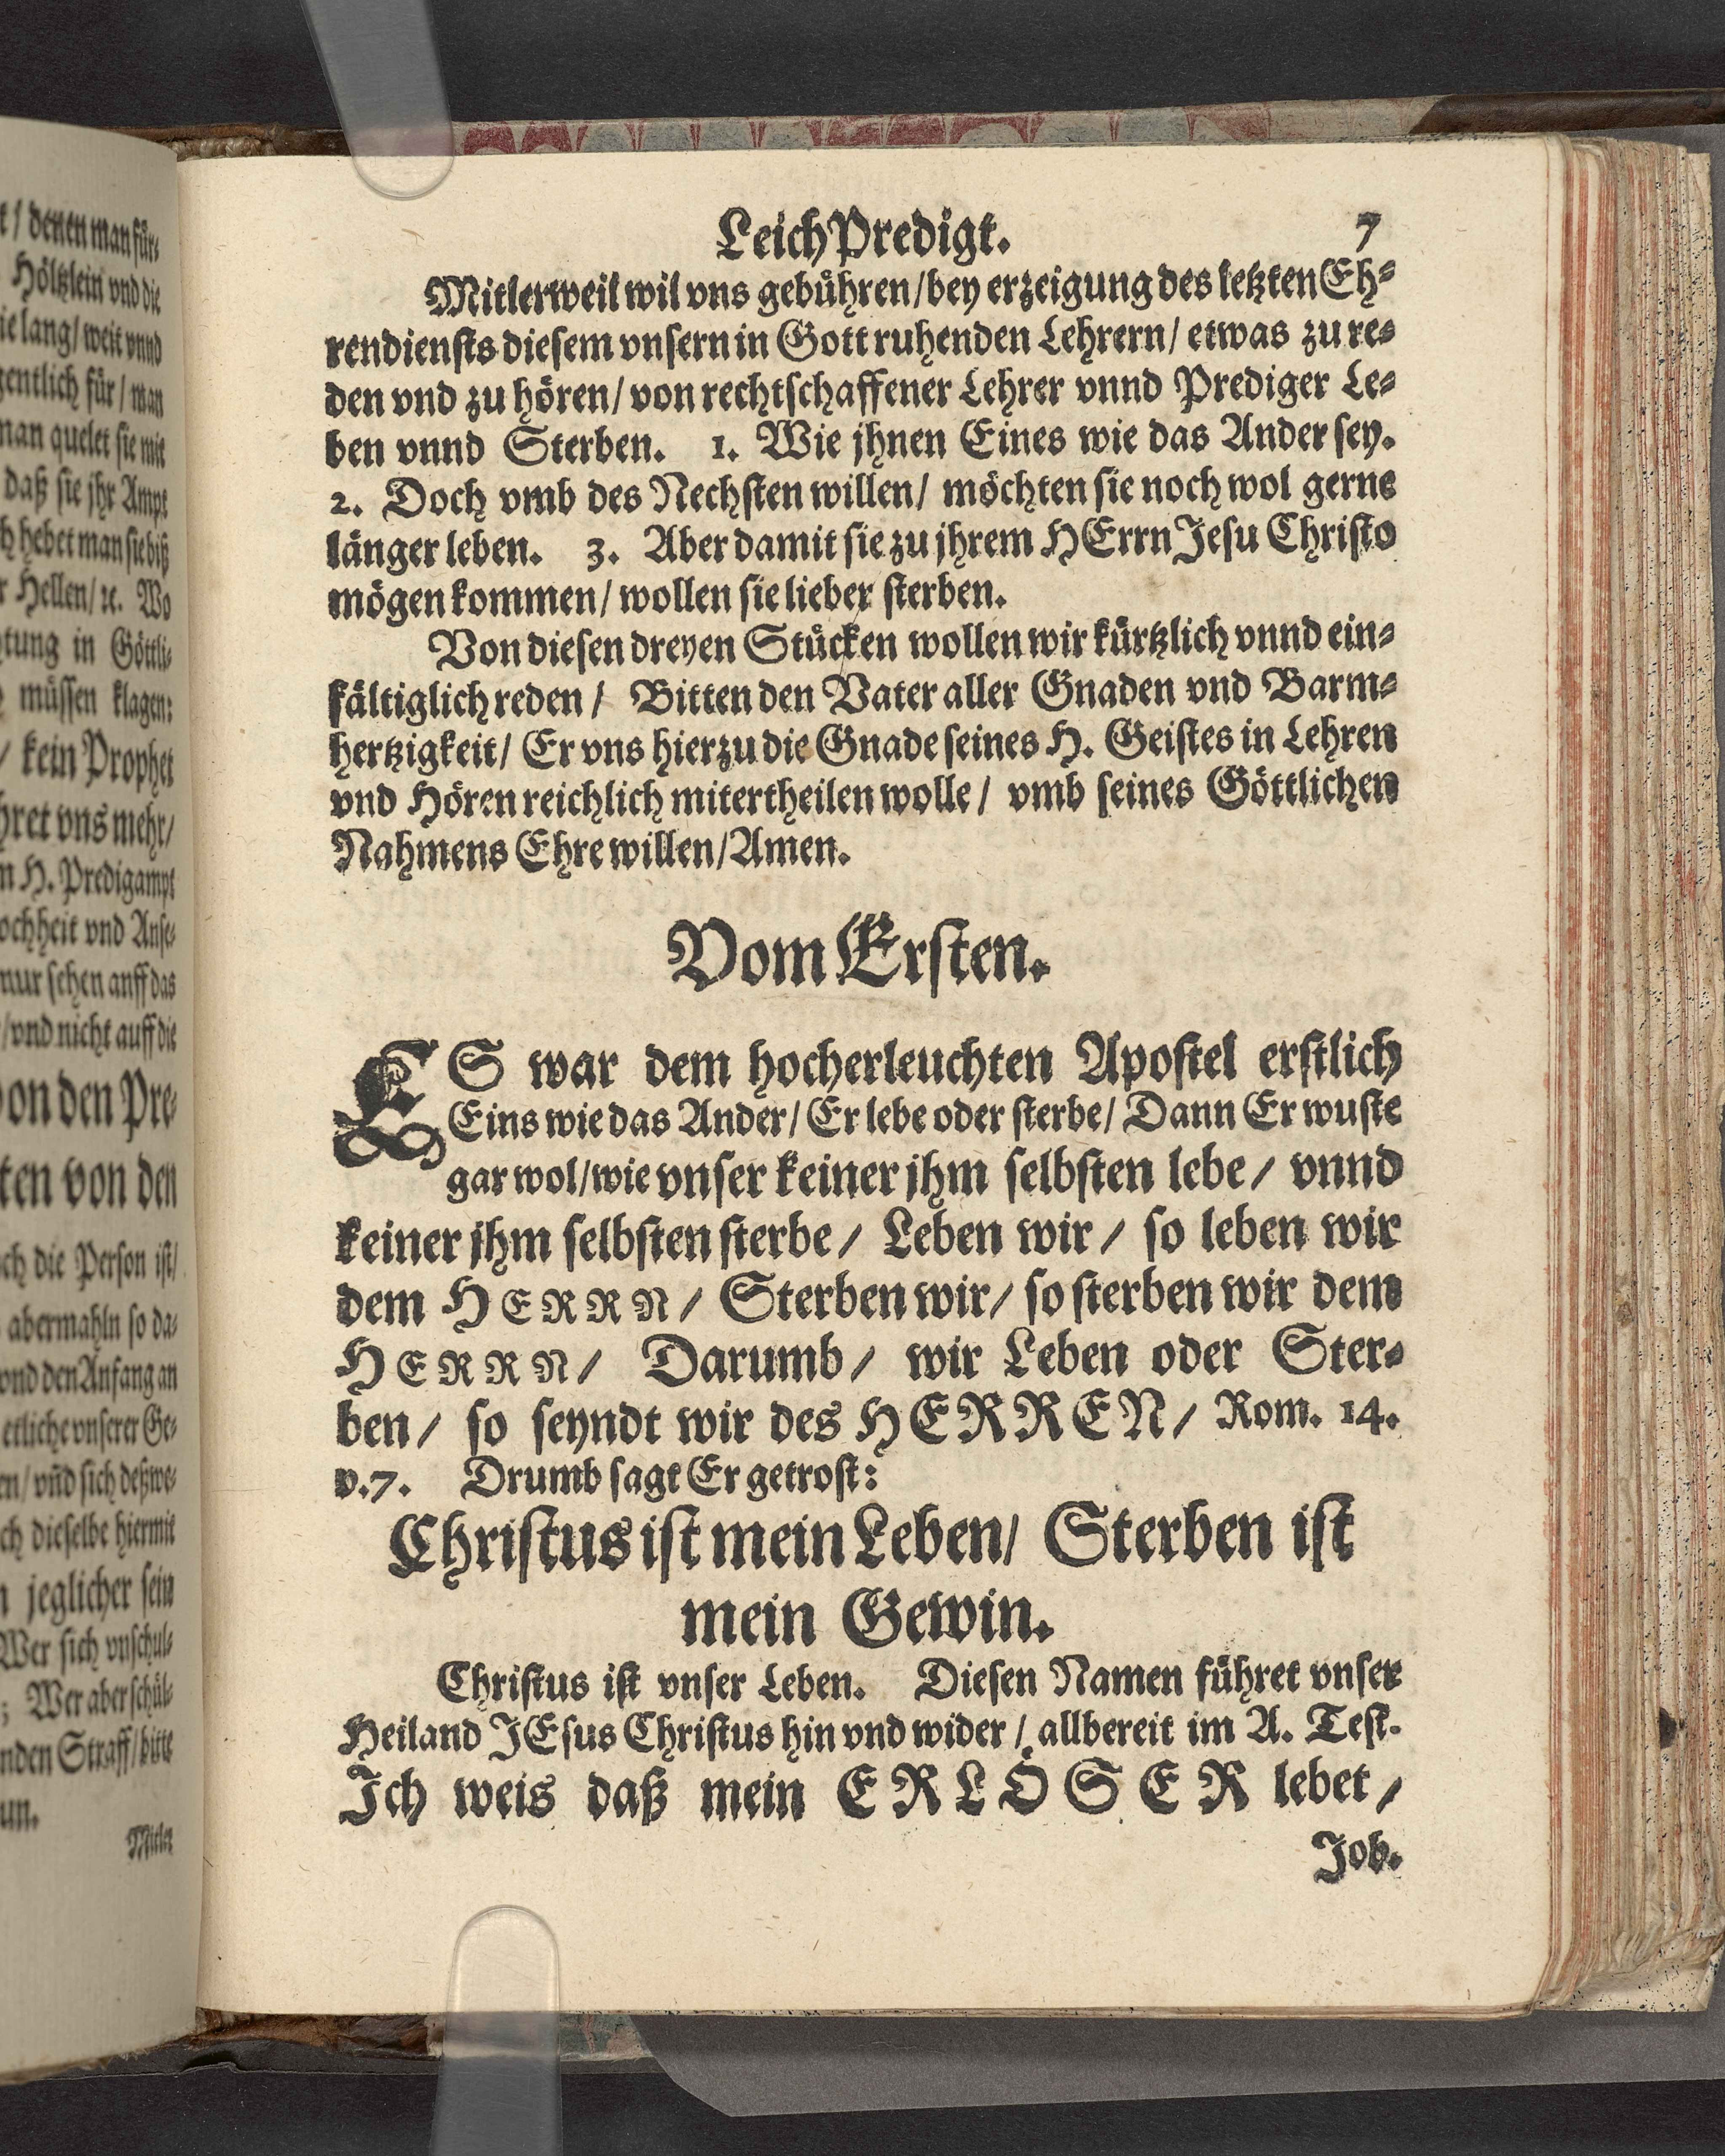 t / denen man für⸗
Höltzlein vnd die
ie lang / weit vnnd
gentlich für / man
man quelet sie mit
daß sie jhr Ampt
ch hebet man sie biß
r Hellen / ꝛc. Wo
htung in Göttli⸗
müssen klagen:
/ kein Prophet
hret vns mehr /
m H. Predigampt
ochheit vnd Anse⸗
nur sehen auff das
/ vnd nicht auff die
von den Pre⸗
ten von den
ch die Person ist /
abermahln so da⸗
vnd den Anfang an
etliche vnserer Ge⸗
en / vñd sich deßwe⸗
ch dieselbe hiermit
n jeglicher sein
Wer sich vnschul⸗
; Wer aber schül⸗
nden Straff / bitte
un.
Mitler
LeichPredigt. 7
Mitlerweil wil vns gebühren / bey erzeigung des letzten Eh⸗
rendiensts diesem vnsern in Gott ruhenden Lehrern / etwas zu re⸗
den vnd zu hören / von rechtschaffener Lehrer vnnd Prediger Le⸗
ben vnnd Sterben. 1. Wie jhnen Eines wie das Ander sey.
2. Doch vmb des Nechsten willen / möchten sie noch wol gerne
länger leben. 3. Aber damit sie zu jhrem HErrn Jesu Christo
mögen kommen / wollen sie lieber sterben.
Von diesen dreyen Stücken wollen wir kürtzlich vnnd ein⸗
fältiglich reden / Bitten den Vater aller Gnaden vnd Barm⸗
hertzigkeit / Er vns hierzu die Gnade seines H. Geistes in Lehren
vnd Hören reichlich mitertheilen wolle / vmb seines Göttlichen
Nahmens Ehre willen / Amen.
Vom Ersten.
ES war dem hocherleuchten Apostel erstlich
Eins wie das Ander / Er lebe oder sterbe / Dann Er wuste
gar wol / wie vnser keiner jhm selbsten lebe / vnnd
keiner jhm selbsten sterbe / Leben wir / so leben wir
dem HERRN / Sterben wir / so sterben wir dem
HERRN / Darumb / wir Leben oder Ster⸗
ben / so seyndt wir des HERREN / Rom. 14.
v. 7. Drumb sagt Er getrost:
Christus ist mein Leben / Sterben ist
mein Gewin.
Christus ist vnser Leben. Diesen Namen führet vnser
Heiland JEsus Christus hin vnd wider / allbereit im A. Test.
Ich weis daß mein ERLÖSER lebet /
Job.